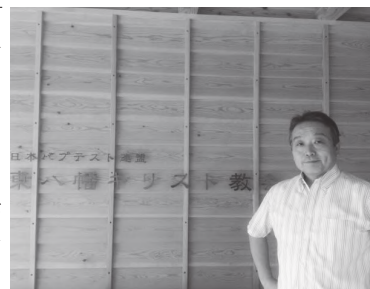 日本バプテスト連盟
東八幡キリスト教会